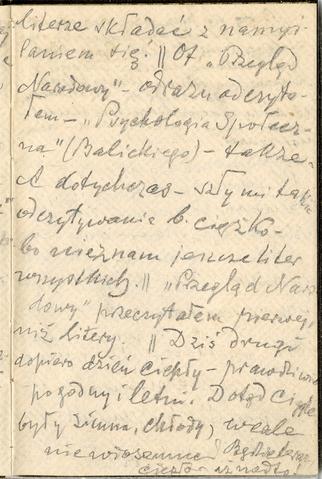 literze składać z namyś
laniem się. || Ot „Przegląd
Narodowy" – od razu odczyta-
łem – „Psychologia Społecz-
na" (Balickiego) – także.
A dotychczas – szły mi takie
odczytywania b. ciężko –
bo nie znam jeszcze liter
wszystkich. || „Przegląd Naro-
dowy" przeczytałem pierwej,
niż litery. || Dziś drugi
dopiero dzień ciepły – prawdziwie
pogodny i letni. Dotąd ciągle
były zimna, chłody, wcale
nie wiosenne! Będzie teraz
ciepło aż nadto!